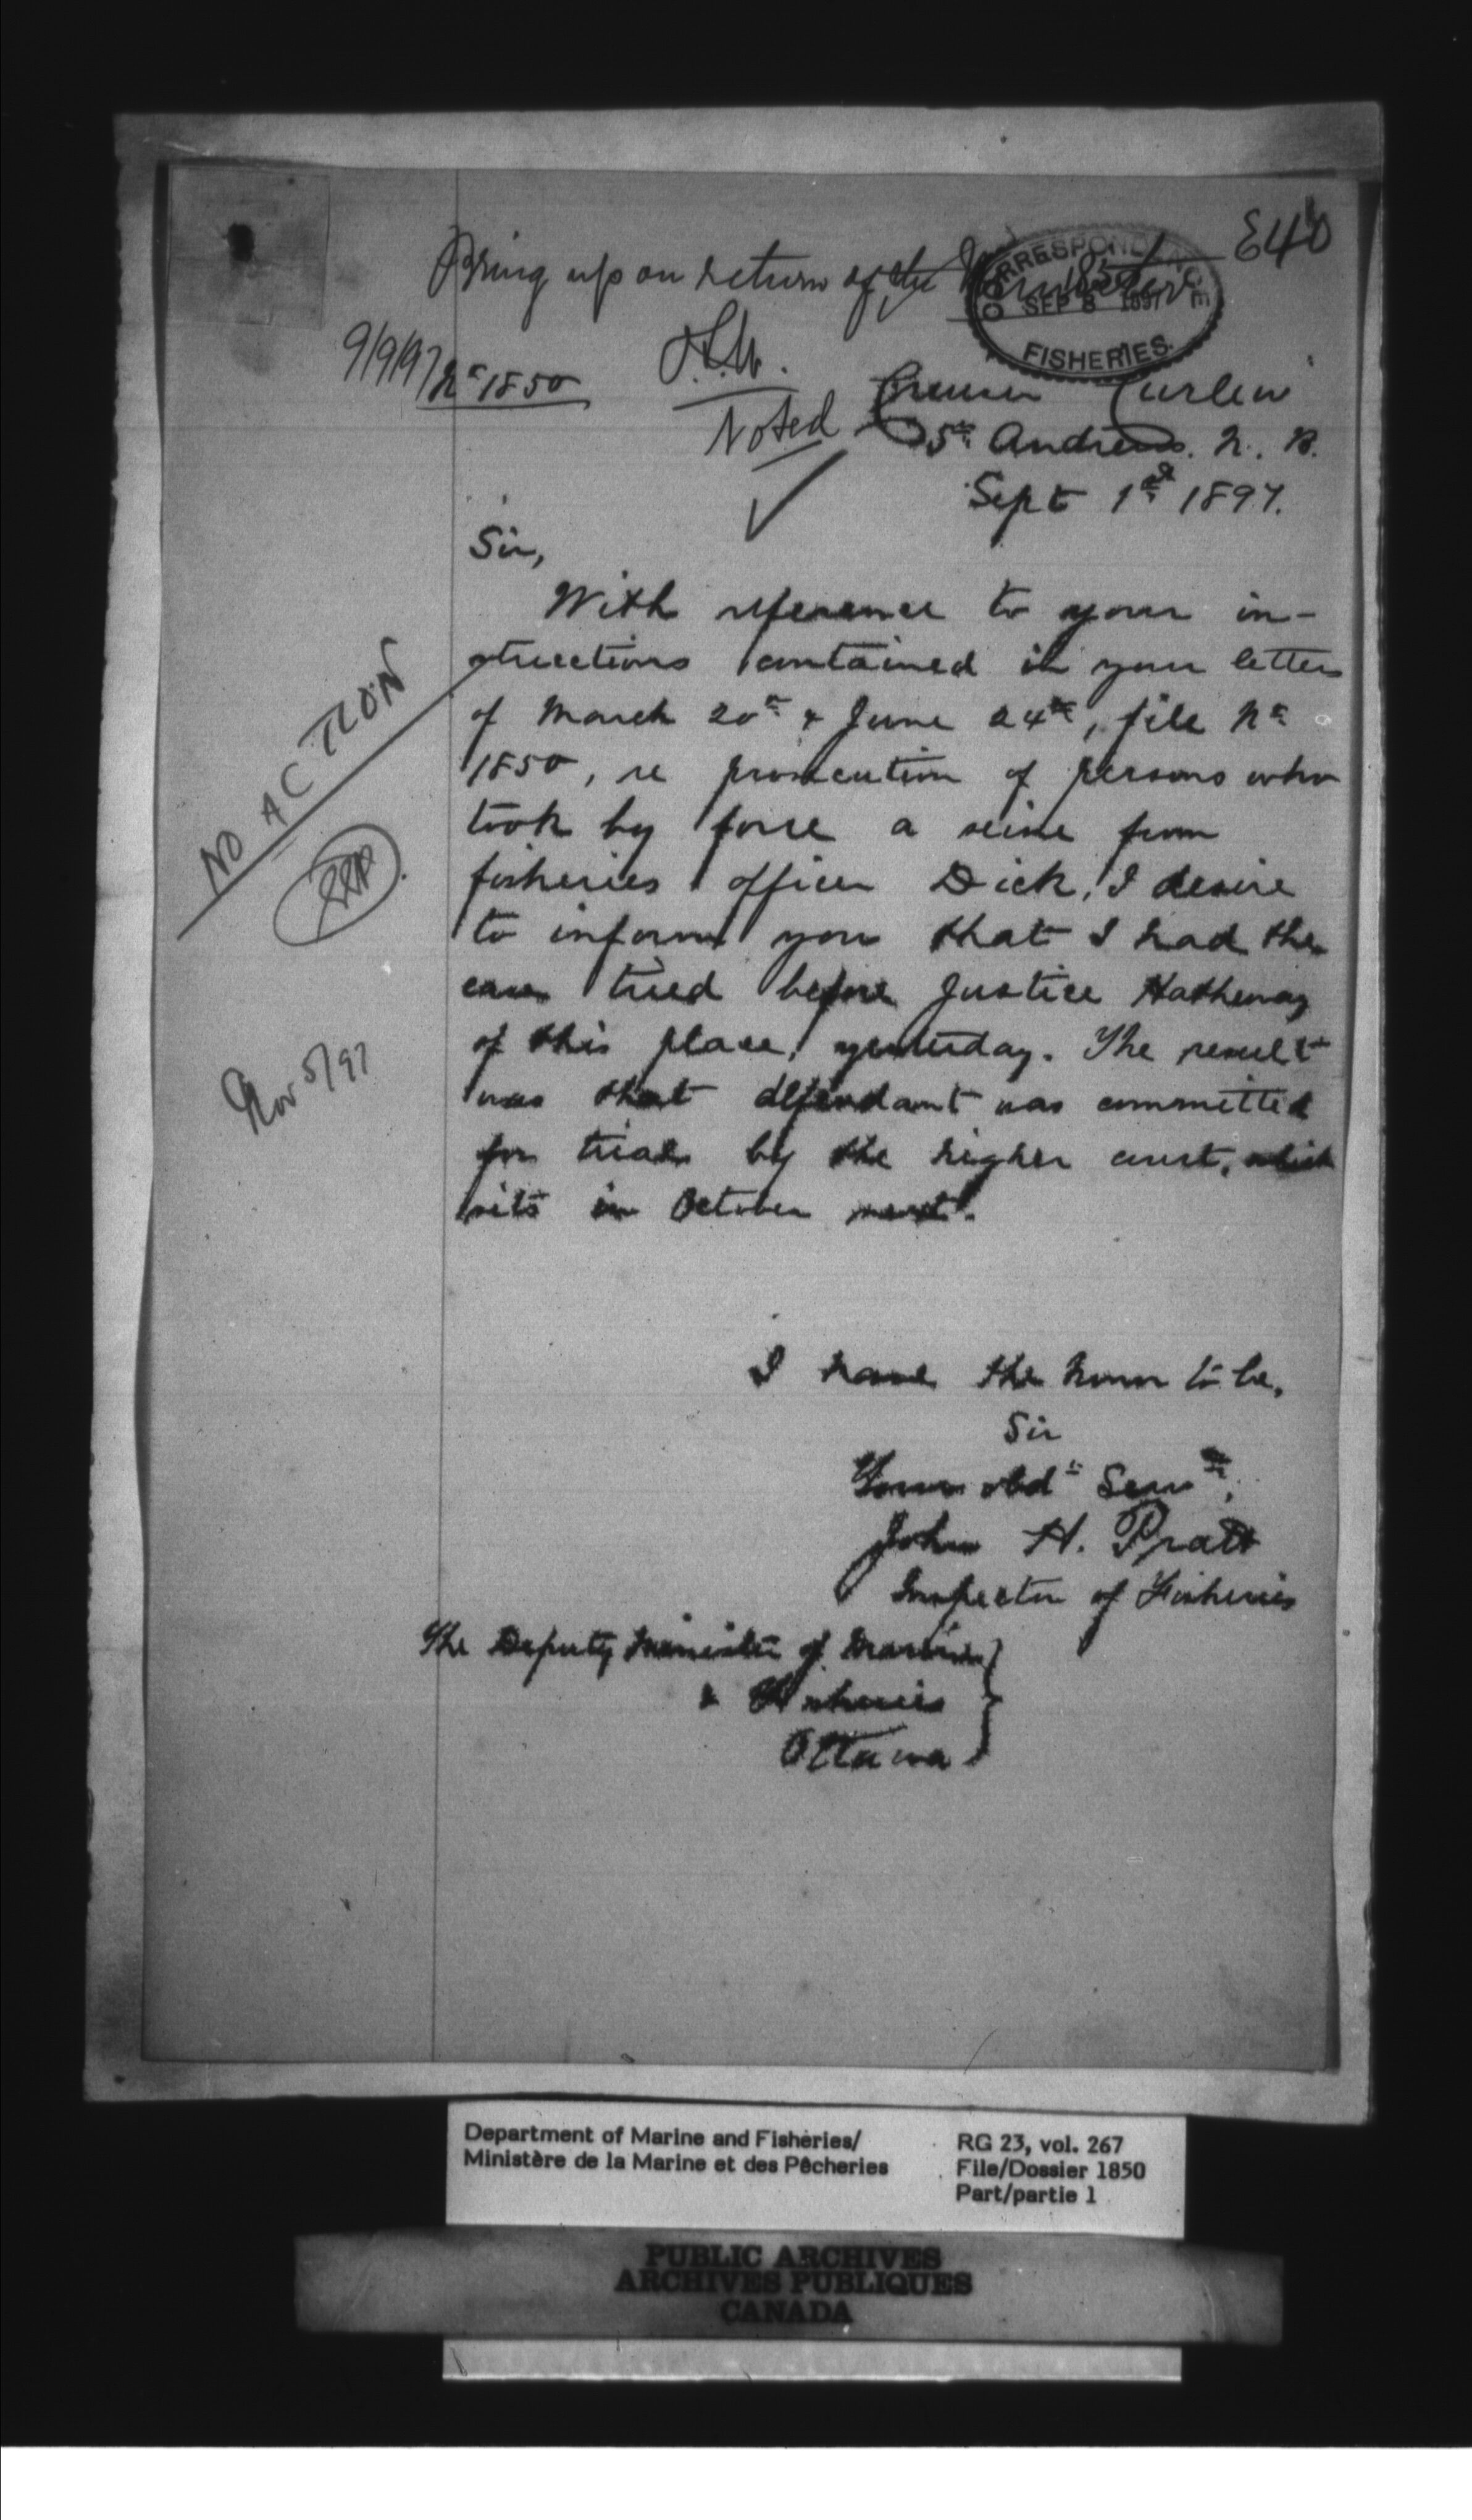 Bring up on return of the Minister
E40
1850
CORRESPONDENCE
SEP 8 1897
FISHERIES.
9/9/97
No 1850
Noted
Cruiser Curlew
St Andrews. N. B.
Sept 1st 1897.
Sir,
With reference to your in-
structions contained in your letter
of March 20th & June 24th, file No
1850, re prosecution of persons who
took by force a seine from
fisheries officer Dick, I desire
to inform you that I had the
case tried before Justice Hatheway
of this place, yesterday. The result
was that defendant was committed
for trial by the higher court, which
sits in October next.
NO ACTION
Nov 5/97
I have the honor to be,
Sir
Your obdt Servt,
John H. Pratt
Inspector of Fisheries
The Deputy Minister of Marine
& Fisheries
Ottawa
Department of Marine and Fisheries/
Ministère de la Marine et des Pêcheries
RG 23, vol. 267
File/Dossier 1850
Part/partie 1
PUBLIC ARCHIVES
ARCHIVES PUBLIQUES
CANADA